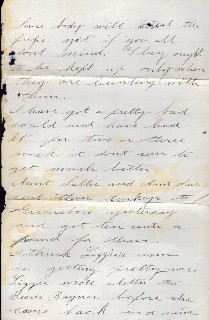 body will steal the
pups yet if you all
dont mind. They ought
to be kept up only when
they are hunting with
them.
I have got a pretty bad
could and have had
it for two or three
week it dont seem to
get much better
Aunt Sallie and Aunt
sent their turkeys to
Greensboro yesterday
and got ten cents a
pound for them.
I think Lizzie
is getting pretty
Lizzie wrote a letter to
before she
came back and